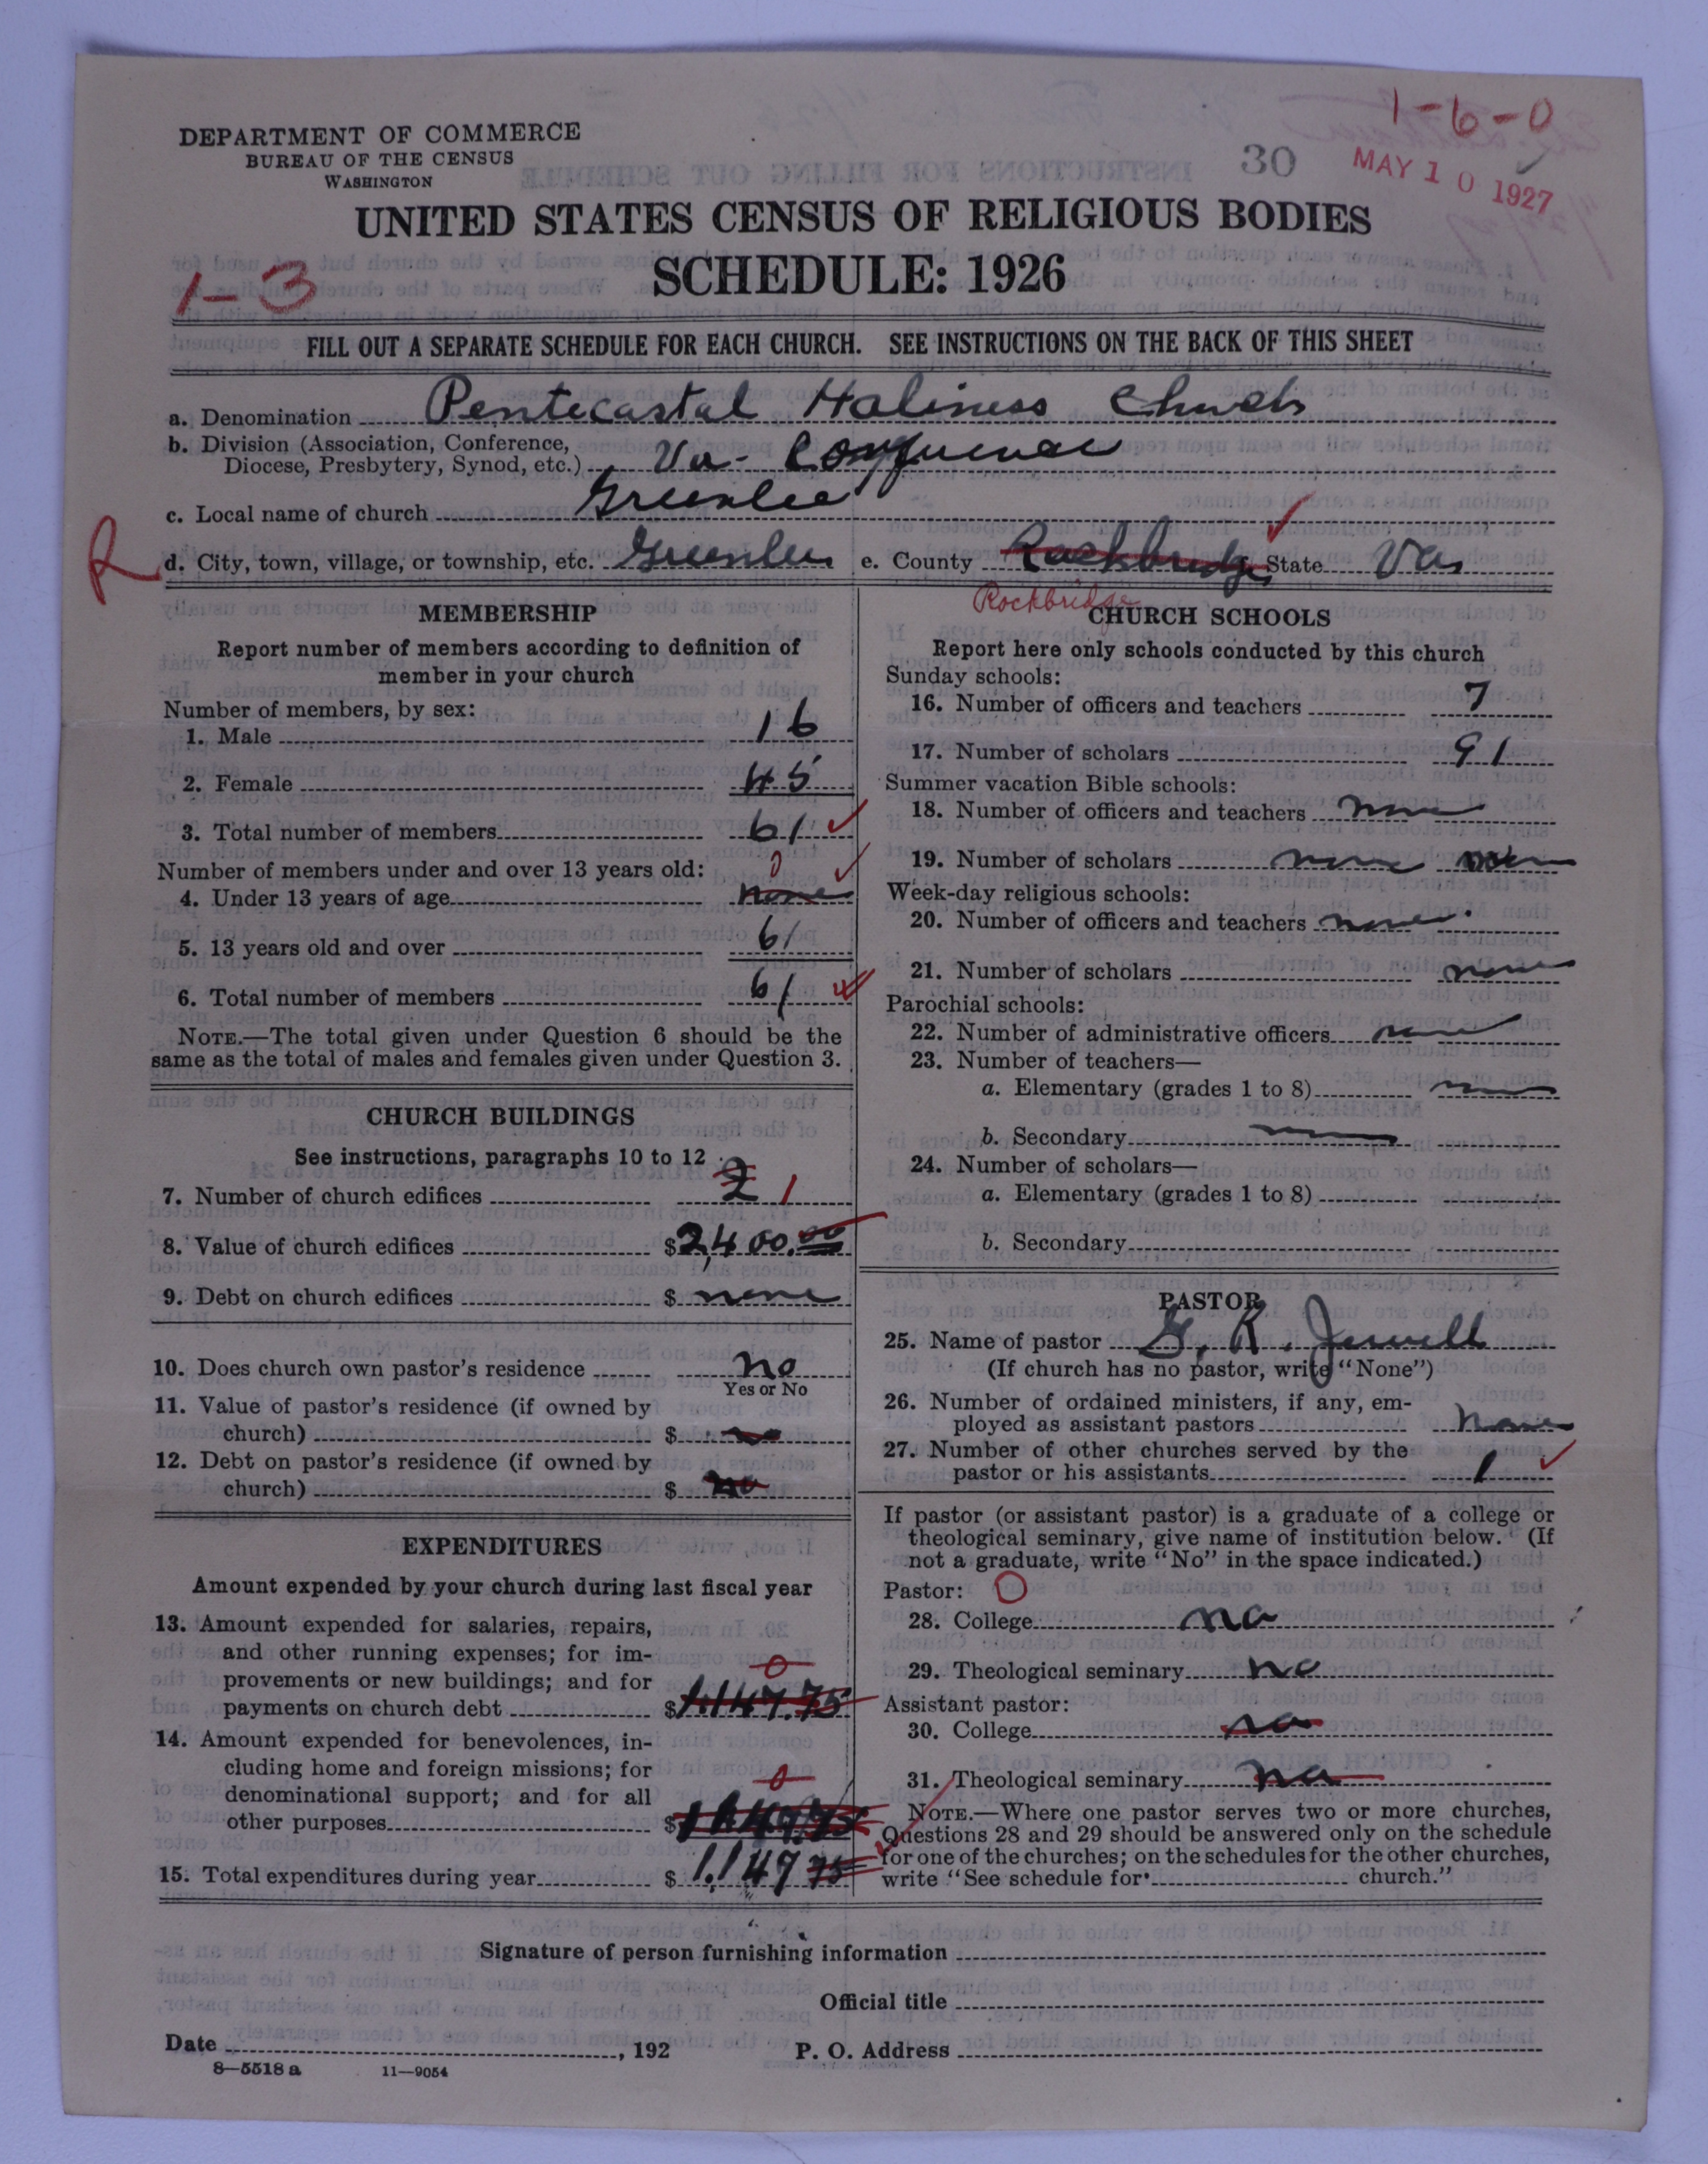 1-6-0
DEPARTMENT OF COMMERCE
BUREAU OF THE CENSUS
WASHINGTON
30
MAY 10 1927
UNITED STATES CENSUS OF RELIGIOUS BODIES
SCHEDULE: 1926
1-3
FILL OUT A SEPARATE SCHEDULE FOR EACH CHURCH. SEE INSTRUCTIONS ON THE BACK OF THIS SHEET
a. Denomination Pentecastal Holiness Church
b. Division (Association, Conference,
Diocese, Presbytery, Synod, etc.) Va. Conference
c. Local name of church Greenlee
R
d. City, town, village, or township, etc. Greenlee e. County Rockbridge State Va.
Rockbridge
MEMBERSHIP
Report number of members according to definition of
member in your church
Number of members, by sex:
1. Male 16
2. Female 45
3. Total number of members 61
Number of members under and over 13 years old: 0
4. Under 13 years of age none
5. 13 years old and over 61
6. Total number of members 61
NOTE.—The total given under Question 6 should be the
same as the total of males and females given under Question 3.
CHURCH BUILDINGS
See instructions, paragraphs 10 to 12
7. Number of church edifices 2 1
8. Value of church edifices $2,400.00
9. Debt on church edifices $ none
10. Does church own pastor's residence no
Yes or No
11. Value of pastor's residence (if owned by
church) $ no
12. Debt on pastor's residence (if owned by
church) $ no
EXPENDITURES
Amount expended by your church during last fiscal year
13. Amount expended for salaries, repairs,
and other running expenses; for im-
provements or new buildings; and for 0
payments on church debt $1.147.75
14. Amount expended for benevolences, in-
cluding home and foreign missions; for
denominational support; and for all 0
other purposes $
15. Total expenditures during year $ 1.149 75
CHURCH SCHOOLS
Report here only schools conducted by this church
Sunday schools:
16. Number of officers and teachers 7
17. Number of scholars 91
Summer vacation Bible schools:
18. Number of officers and teachers none
19. Number of scholars none none
Week-day religious schools:
20. Number of officers and teachers none
21. Number of scholars none
Parochial schools:
22. Number of administrative officers none
23. Number of teachers—
a. Elementary (grades 1 to 8) none
b. Secondary none
24. Number of scholars—
a. Elementary (grades 1 to 8)
b. Secondary
PASTOR
25. Name of pastor G. R. Jewell
(If church has no pastor, write "None")
26. Number of ordained ministers, if any, em-
ployed as assistant pastors None
27. Number of other churches served by the
pastor or his assistants 1
If pastor (or assistant pastor) is a graduate of a college or
theological seminary, give name of institution below. (If
not a graduate, write "No" in the space indicated.)
Pastor: O
28. College no
29. Theological seminary no
Assistant pastor:
30. College no
31. Theological seminary no
NOTE.—Where one pastor serves two or more churches,
Questions 28 and 29 should be answered only on the schedule
for one of the churches; on the schedules for the other churches,
write "See schedule for church."
Signature of person furnishing information
Official title
Date , 192 P. O. Address
8—5518 a 11—9054